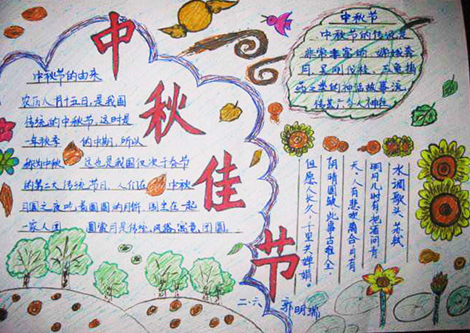 中秋佳节
中秋节的由来
农历八月十五日,是我国
传统的中秋节,这时是
一年秋季 的中期,所以
称为中秋 这也是我国仅次于春节
的第二大传统节日,人们在 中秋
月圆之夜吃着圆圆的月饼,围坐在一起
一家人团 圆赏月是传统,风俗,寓意,团圆。
中秋节
中秋节的传说是
非常丰富的,嫦娥奔
月,吴刚伐桂,玉兔捣
药之类的神话故事流
传甚广
水调歌头 苏轼
明月几时有,把酒问青
天。人有悲欢离合,月有
阴晴圆缺,此事古难全。
但愿人长久,千里共婵娟。
二.六